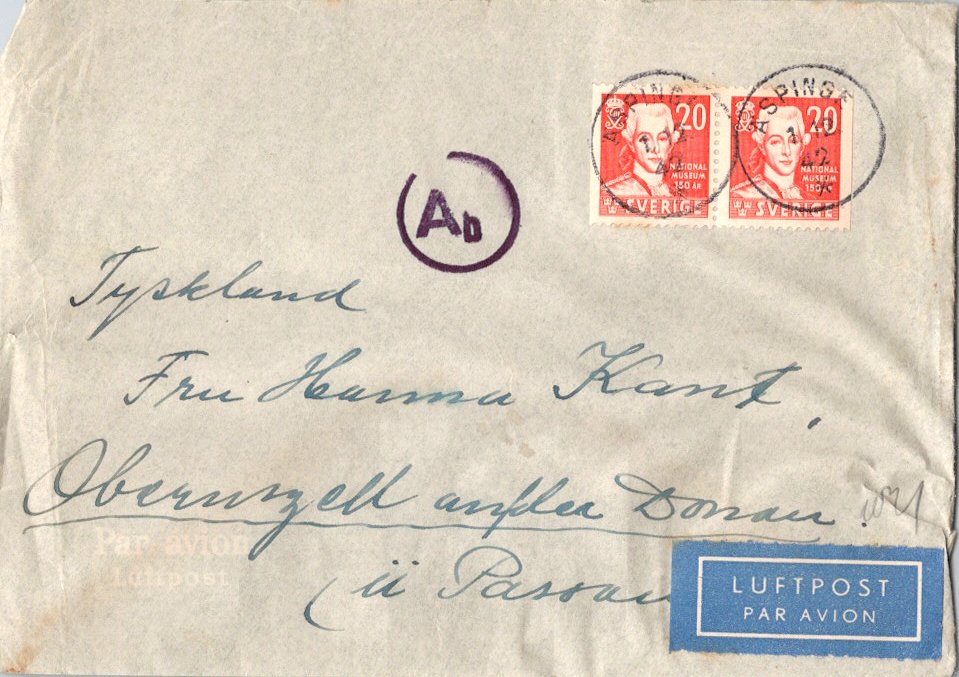 ASPINGE
1.12
42
20
NATIONAL
MUSEUM
150 ÅR
SVERIGE
ASPINGE
1.12
42
20
NATIONAL
MUSEUM
150 ÅR
SVERIGE
Ab
Tyskland
Fru Hanna Kant,
Obernzell an der Donau
ü Passau
Par avion
Luftpost
LUFTPOST
PAR AVION